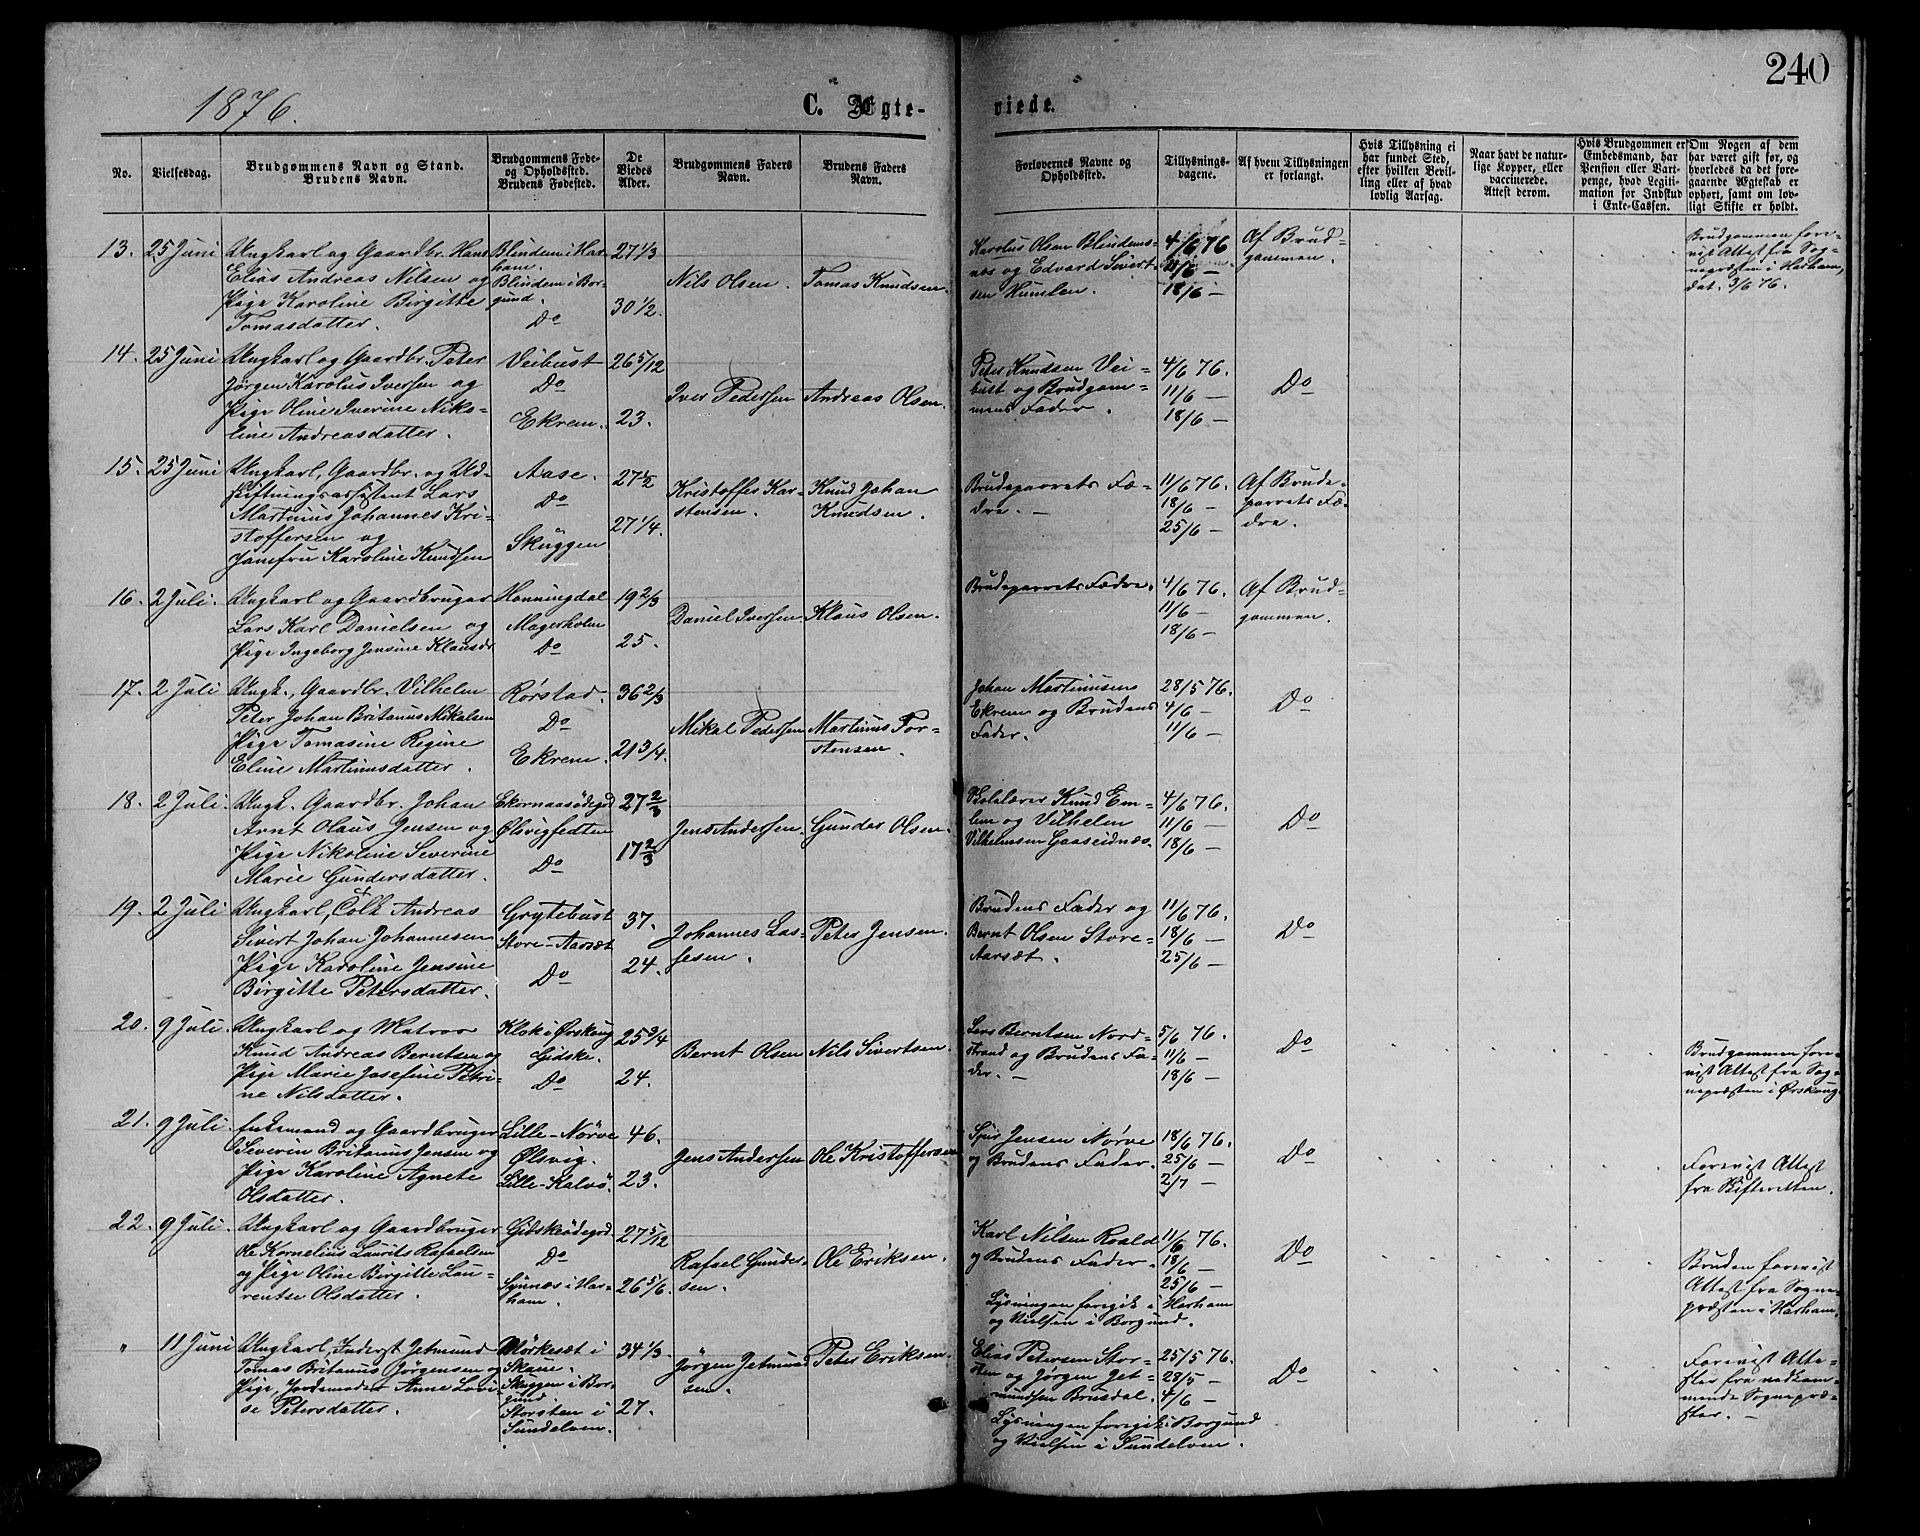 240
1876.
C. Ægte-
viede.
No.
Vielsesdag.
Brudgommens Navn og Stand.
Brudens Navn.
Brudgommens Føde-
og Opholdssted.
Brudens Fødested.
De
Viedes
Alder.
Brudgommens Faders
Navn.
Brudens Faders
Navn.
Forlovernes Navne og
Opholdssted.
Tillysnings-
dagene.
Af hvem Tillysningen
er forlangt.
Hvis Tillysning ei
har fundet Sted,
efter hvilken Bevil-
ling eller af hvad
lovlig Aarsag.
Naar havt de natur-
lige Kopper, eller
vaccinerede.
Attest derom.
Hvis Brudgommen er
Embedsmand, har
Pension eller Vart-
penge, hvad Legiti-
mation for Indskud
i Enke-Cassen.
Om Nogen af dem
har været gift før, og
hvorledes da det fore-
gaaende Ægteskab er
ophørt, samt om lov-
ligt Skifte er holdt.
13.
25 Juni
Ungkarl og Gaardbr. Hans
Elias Andreas Nilsen og
Pige Karoline Birgitte
Tomasdatter.
Blindem i Har-
ham.
Blindem i Bor-
gund.
Do
27 1/3
30 1/2.
Nils Olsen.
Tomas Knudsen.
Karolus Olsen Blindems-
næs og Edvard Sivert-
sen Humlen.
4/6 76
11/6 —
18/6 —
Af Brud-
gommen.
Brudgommen fore-
vist Attest fra Sog-
nepræsten i Harham,
dat. 3/6 76.
14.
25 Juni
Ungkarl og Gaardbr. Peter
Jørgen Karolus Iversen og
Pige Oline Iverine Niko-
line Andreasdatter.
Veibust
Do
Ekrem.
26 5/12
23.
Iver Pedersen
Andreas Olsen.
Peter Knudsen Vei-
bust og Brudgom-
mens Fader.
4/6 76.
11/6 —
18/6 —
Do
15.
25 Juni
Ungkarl, Gaardbr. og Ud-
skiftningsassistent Lars
Martinus Johannes Kri-
stoffersen og
Jomfru Karoline Knudsen
Aase.
Do
Skuggen
27 1/2
27 1/4.
Kristoffer Kar-
stensen.
Knud Johan
Knudsen.
Brudeparrets Fæ-
dre. —
11/6 76.
18/6 —
25/6 —
Af Brude-
parrets Fæ-
dre.
16.
2 Juli.
Ungkarl og Gaardbruger
Lars Karl Danielsen og
Pige Ingeborg Jensine Klausdr
Honningdal
Magerholm
Do
19 2/3
25.
Daniel Iversen
Klaus Olsen.
Brudeparrets Fædre.
4/6 76.
11/6 —
18/6 —
Af Brud-
gommen.
17.
2 Juli
Ungk., Gaardbr. Vilhelm
Peter Johan Britanus Mikalsen
Pige Tomasine Regine
Eline Martinusdatter.
Rørstad.
Do
Ekrem.
36 2/3
21 3/4.
Mikal Pedersen
Martinus Tor-
stensen.
Johan Martinusens
Ekrem og Brudens
Fader.
28/5 76.
4/6 —
11/6 —
Do
18.
2 Juli.
Ungk. Gaardbr. Johan
Arnt Olaus Jensen og
Pige Nikoline Severine
Marie Gundersdatter.
Ekornaasødegd
Ølsvigfedten
Do
27 2/3
17 2/3
Jens Andersen.
Gunder Olsen.
Skolelærer Knud Em-
lem og Vilhelm
Vilhelmsen Gaaseidnæs.
4/6 76.
11/6 —
18/6 —
Do
19.
2 Juli
Ungkarl, Andreas
Sivert Johan Johannesen
Pige Karoline Jensine
Birgitte Petersdatter.
Grytebust
Store-Aarsæt
Do
37.
24.
Johannes Las-
sesen.
Peter Jensen.
Brudens Fader og
Bernt Olsen Store-
Aarsæt.
11/6 76.
18/6 —
25/6 —
Do
20.
9 Juli.
Ungkarl og Matros
Knud Andreas Berntsen og
Pige Marie Josefine Petri-
ne Nilsdatter.
Klok i Ørskoug
Gidske.
Do
25 3/4
24.
Bernt Olsen
Nils Sivertsen.
Lars Berntsen Nord-
strand og Brudens Fa-
der. —
5/6 76.
11/6 —
18/6 —
Do
Brudgommen fore-
vist Attest fra Sog-
nepræsten i Ørskoug.
21.
9 Juli.
Enkemand og Gaardbruger
Severin Britanus Jensen og
Pige Karoline Agnete
Olsdatter.
Lille-Nørve
Ølsvig.
Lille-Kalvø.
46.
23.
Jens Andersen
Ole Kristoffersen
Sjur Jensen Nørve
og Brudens Fader.
18/6 76.
25/6 —
2/7 —
Do
Forevist Attest
fra Skifteretten.
22.
9 Juli.
Ungkarl og Gaardbruger
Ole Kornelius Laurits Rafaelsen
og Pige Oline Birgitte Lau-
rentse Olsdatter.
Gidskeødegrd
Do
Synnæs i Har-
ham.
27 5/12
26 5/6.
Rafael Gunder-
sen.
Ole Eriksen.
Karl Nilsen Roald
og Brudens Fader.
11/6 76.
18/6 —
25/6 —
Lysningen foregik i Harham
og Vielsen i Borgund.
Do
Bruden forevist
Attest fra Sogne-
præsten i Harham.
"
11 Juni
Ungkarl, Inderst Jetmund
Tomas Britanus Jørgensen og
Pige, Jordemoder Anne Lovi-
se Petersdatter.
Mørkesæt i
Skaue.
Skuggen i Bor-
gund
Storsten i
Sundelven.
34 1/3.
27.
Jørgen Jetmund-
sen.
Peter Eriksen.
Elias Petersen Stor-
sten og Jørgen Jet-
mundsen Brusdal.
25/5 76.
28/5 —
4/6 —
Lysningen foregik i Borgund
og Vielsen i Sundelven.
Do
Forevist Atte-
ster fra vedkom-
mende Sognepræ-
ster. —